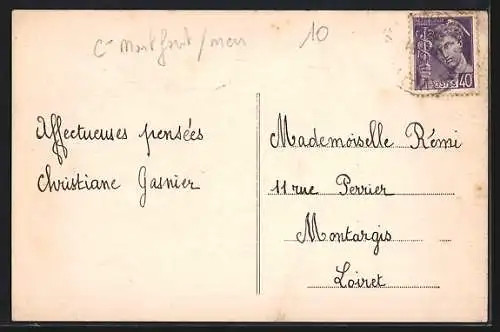 10
POSTES 40
Affectueuses pensées
Christiane Gasnier
Mademoiselle Rémi
11 rue Perrier
Montargis
Loiret